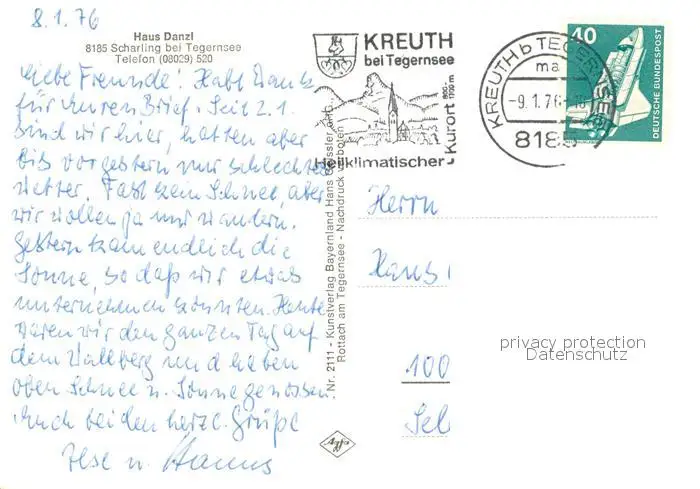 8.1.76
Haus Danzl
8185 Scharling bei Tegernsee
Telefon (08029) 520
Liebe Freunde! Habt Dank
für Euren Brief. Seit 2.1.
sind wir hier, hatten aber
bis vorgestern nur schlechtes
Wetter. Fast kein Schnee, aber
wir wollen ja nur wandern.
Gestern kam endlich die
Sonne, so daß wir etwas
unternehmen konnten. Heute
waren wir den ganzen Tag auf
dem Wallberg und haben
oben Schnee u. Sonne genossen.
Euch beiden herzl. Grüße
Ilse u. Hanns
Nr. 2111 - Kunstverlag Bayernland Hans
Rottach am Tegernsee - Nachdruck verboten
Agfa
KREUTH
bei Tegernsee
800-
Kurort
Heilklimatischer
KREUTH b TEGERNSEE
ma
-9.1.76-
8185
40
DEUTSCHE BUNDESPOST
Herrn
Hans
100
Sel
privacy protection
Datenschutz